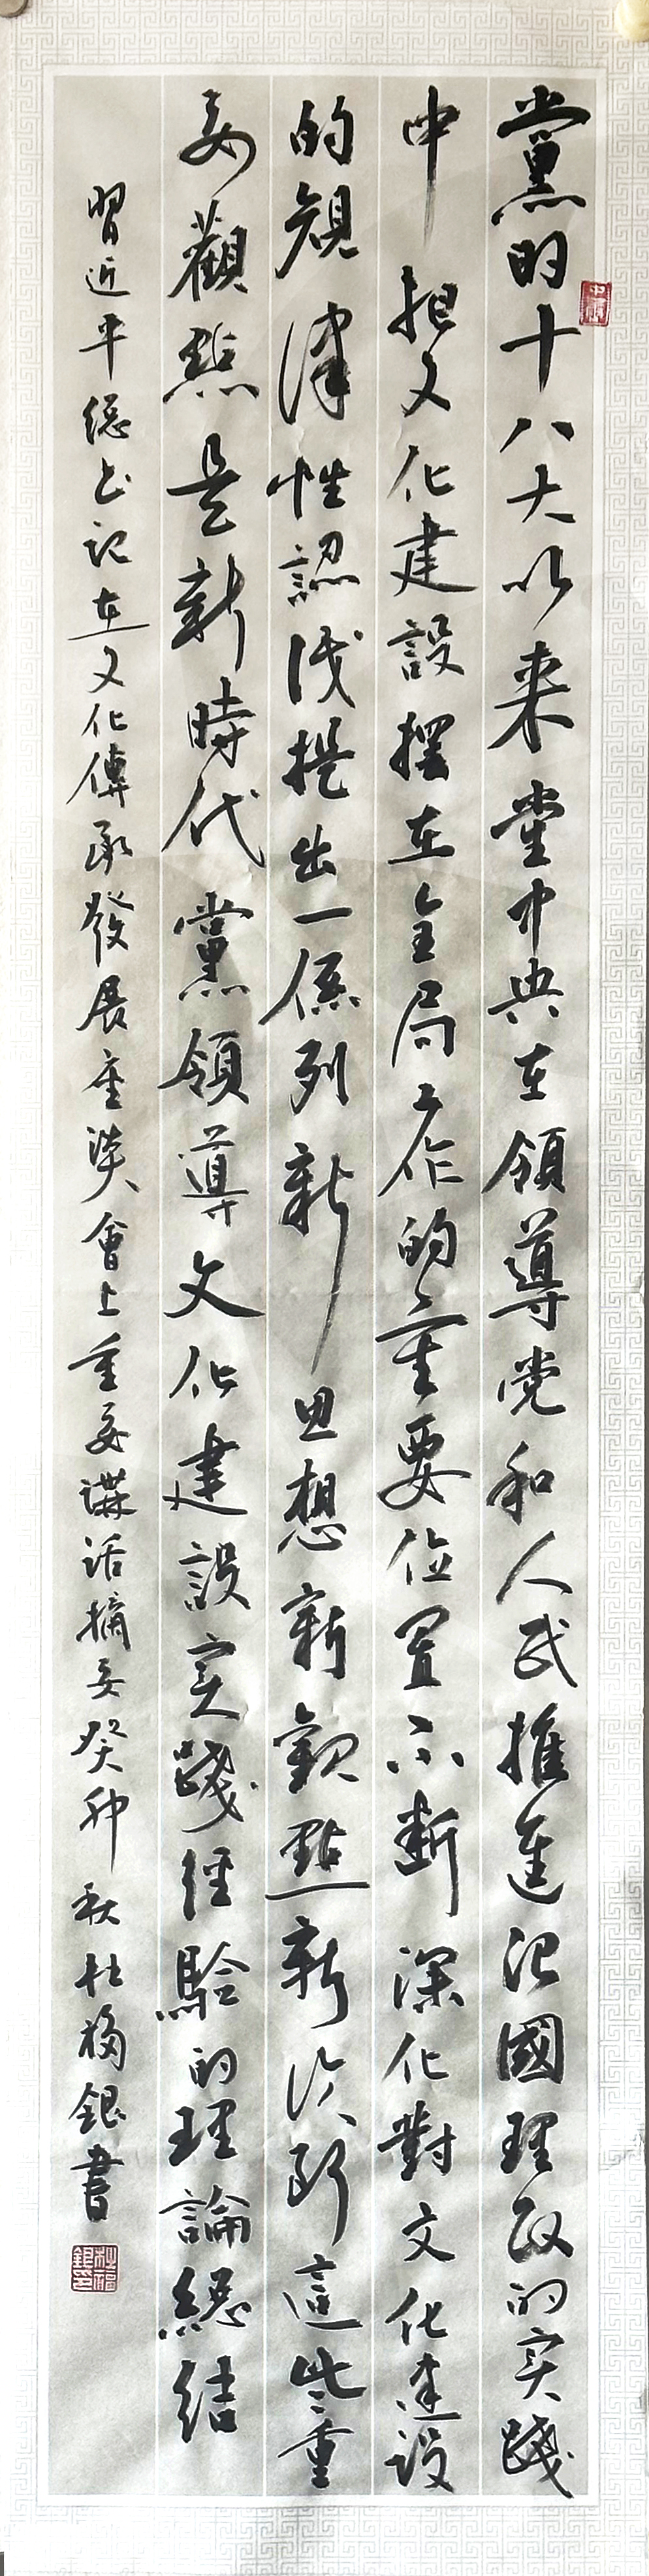 黨的十八大以来党中央在領導党和人民推進治國理政的实踐
中把文化建設摆在全局工作的重要位置不断深化對文化建设
的規律性認识提出一係列新思想新觀點新论断這些重
要觀點是新時代黨領導文化建設实踐经驗的理論總結
習近平總书记在文化傳承發展座谈會上重要講话摘要癸卯秋杜福銀書